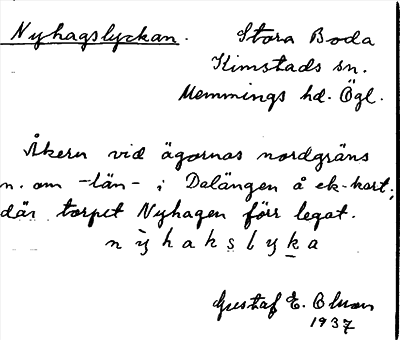 Nyhagslyckan. Stora Boda
Kimstads sn.
Memmings hd. Ögl.
Åkern vid ägornas nordgräns
n. om -län- i Dalängen å ek-kart;
där torpet Nyhagen förr legat.
nỳhakslyka
Gustaf E. Olson
1937